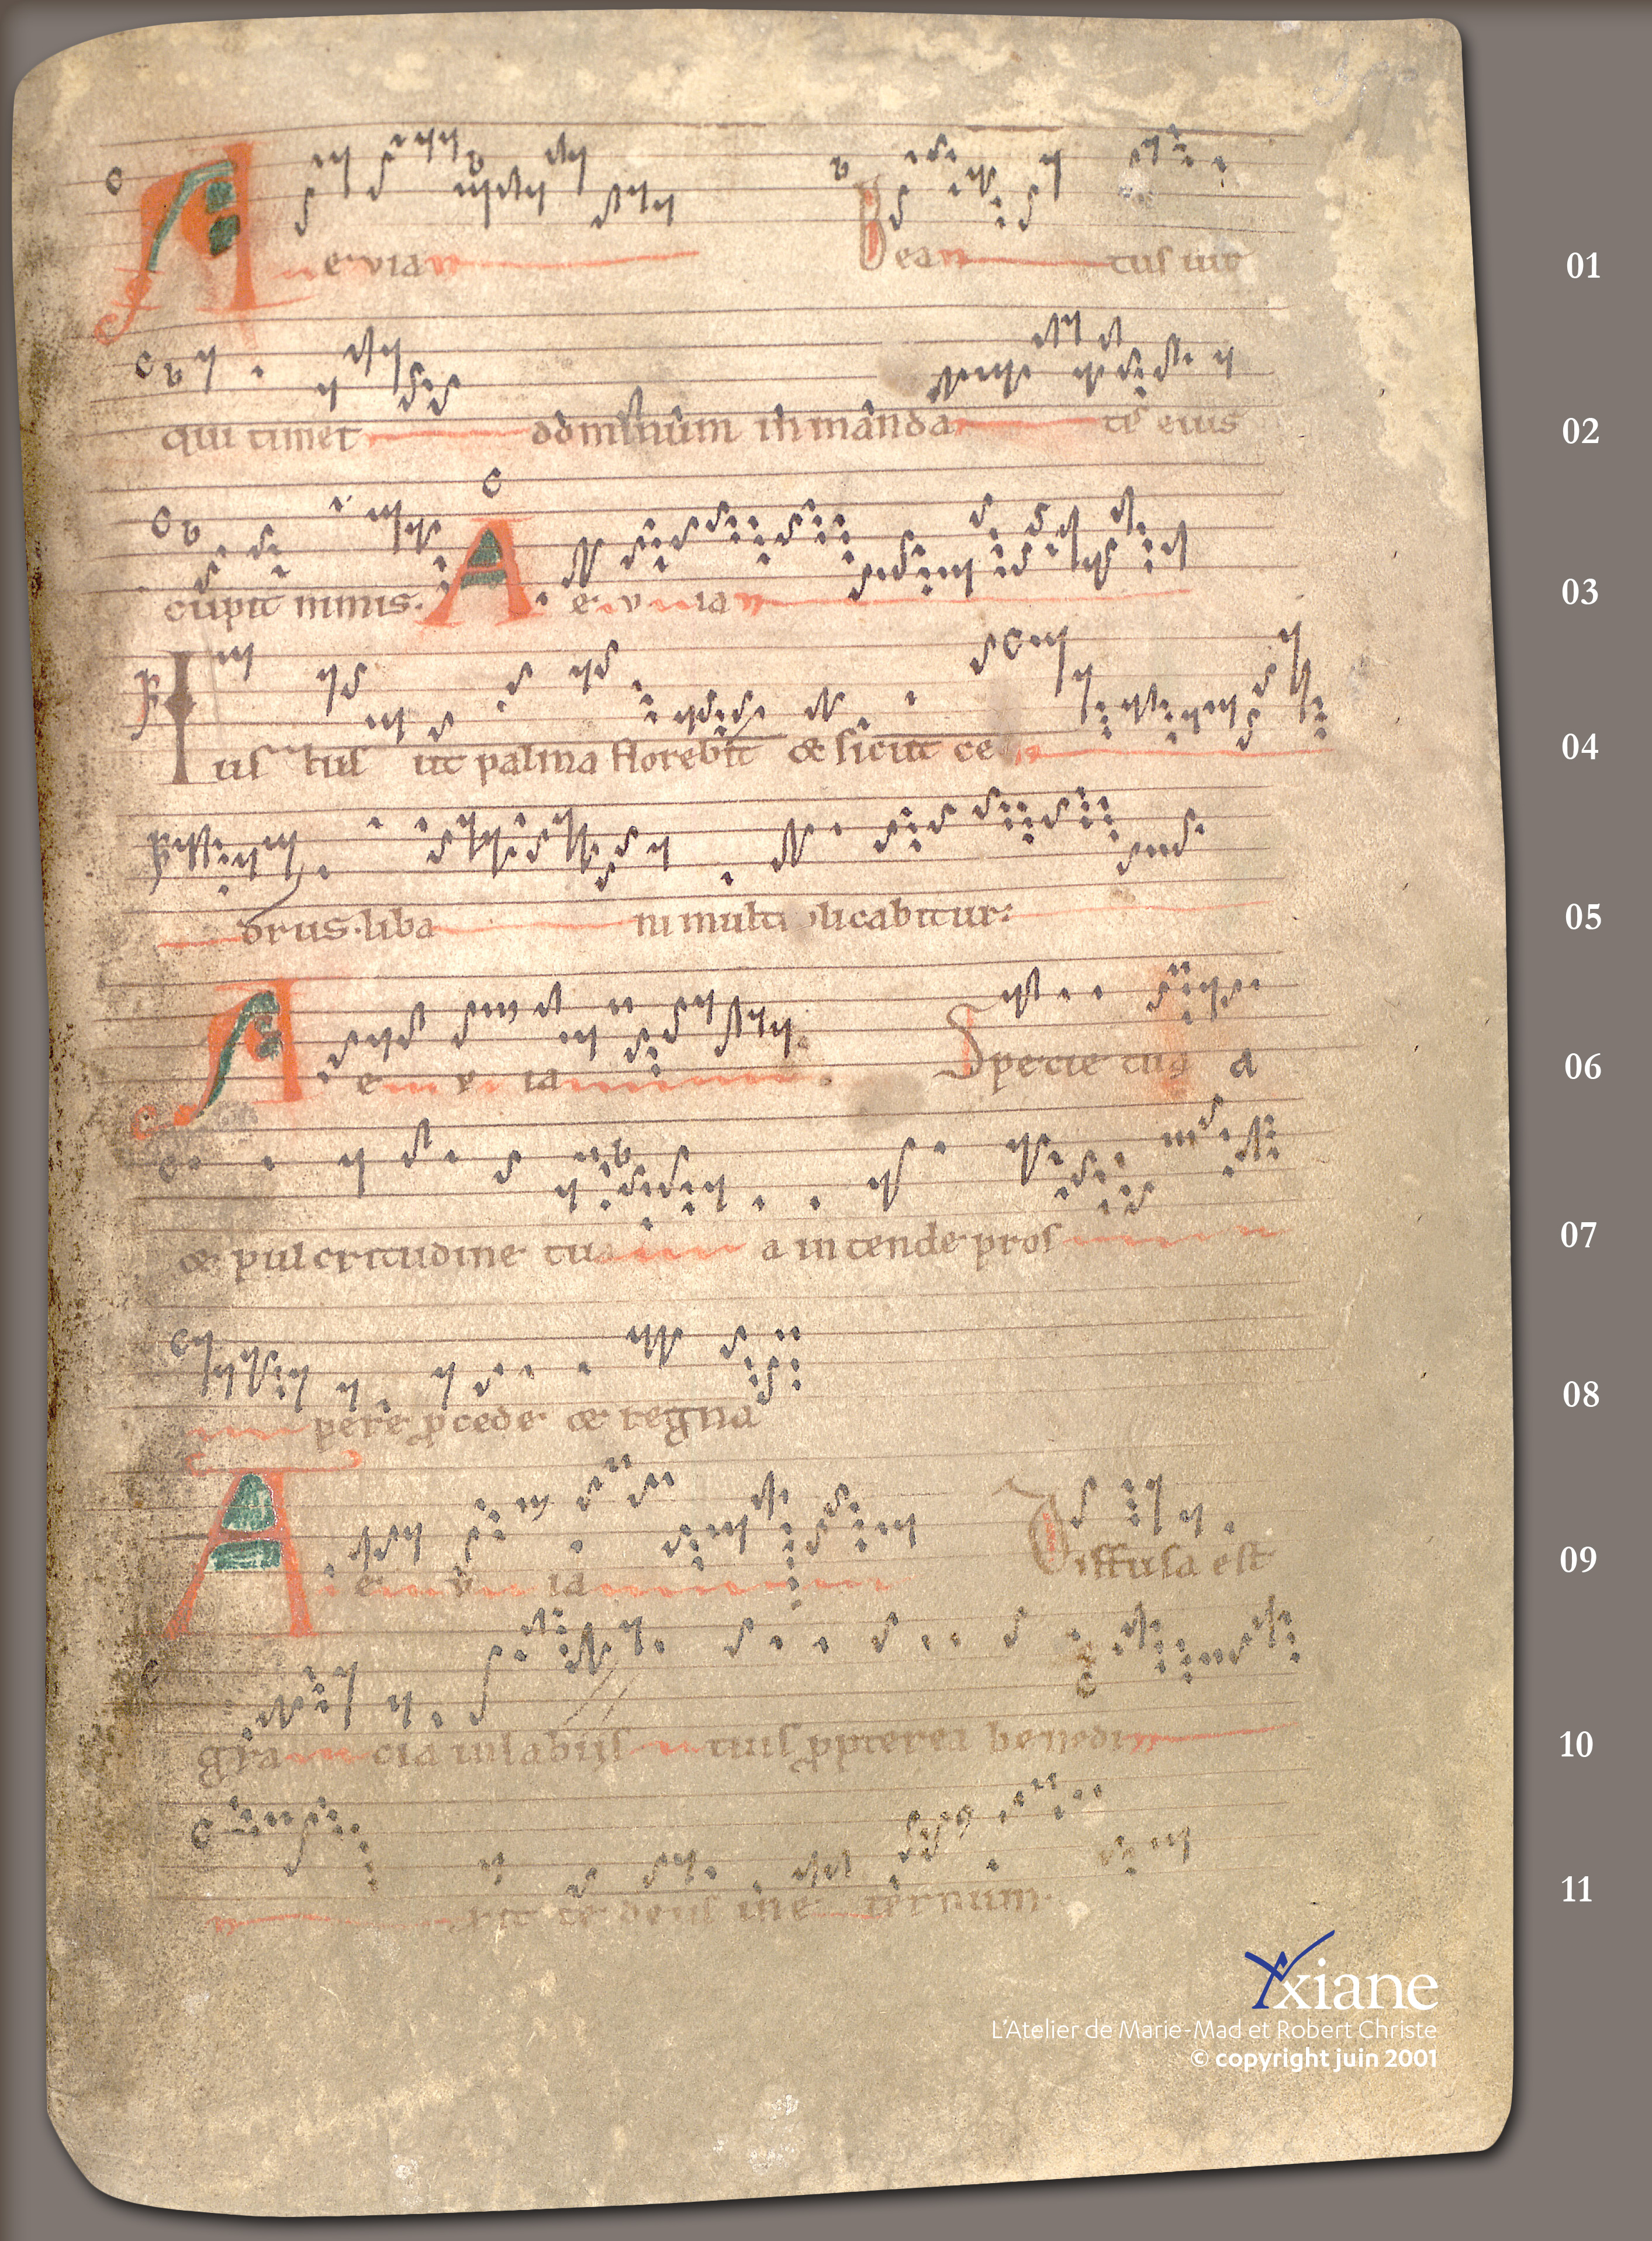 A e v ia Bea tus uir 01
qui timet dominum in manda tis eius 02
cupit nimis. A e v ia 03
Ius tus ut palma florebit & sicut ce 04
drus. liba ni multi plicabitur: 05
A e v ia Specie tua a 06
& pulcritudine tu a intende pros 07
pere pcede & regna 08
A e v ia Diffusa est 09
gra cia in labiis tuis ppterea benedi 10
xit te deus in e ternum. 11
Yxiane
L'Atelier de Marie-Mad et Robert Christe
© copyright juin 2001